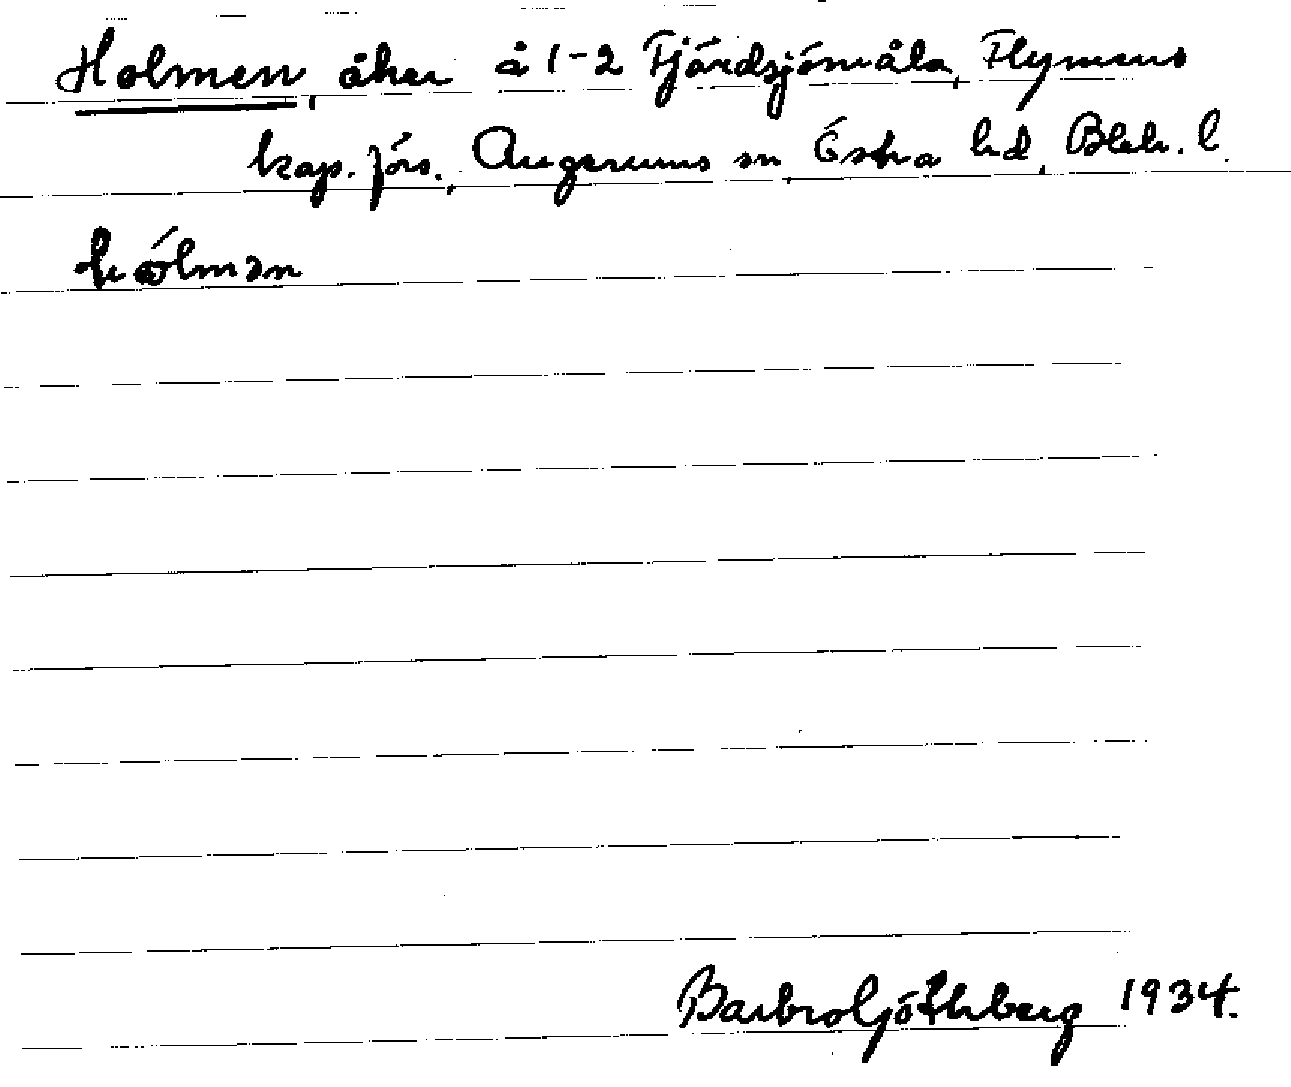 Holmen, åker å 1-2 Fjärdsjömåla, Flymens
kap. förs., Augerums sn, Östra hd, Blek. l.
Barbro Göthberg 1934.